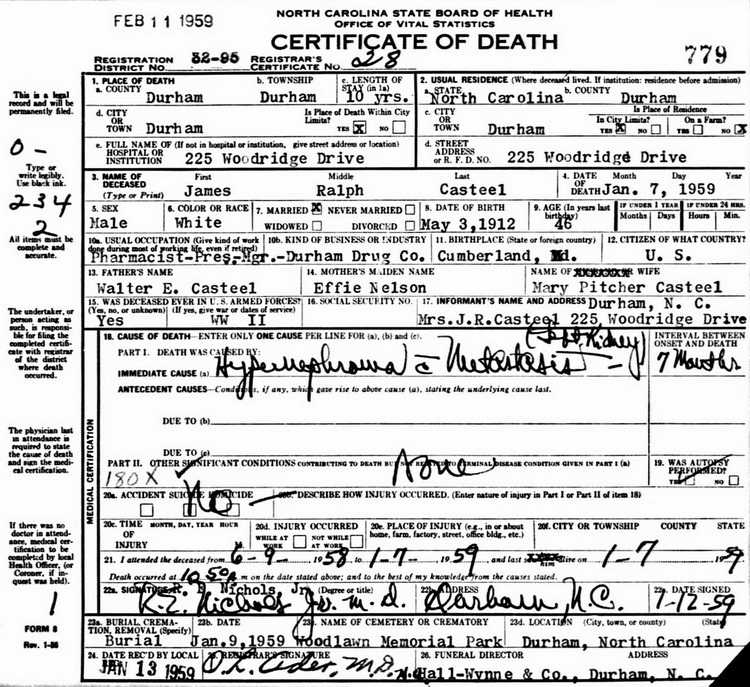 FEB 11 1959
NORTH CAROLINA STATE BOARD OF HEALTH
OFFICE OF VITAL STATISTICS
CERTIFICATE OF DEATH
779
REGISTRATION DISTRICT NO. 32-95 REGISTRAR'S CERTIFICATE NO. 28
This is a legal record and will be permanently filed.
0-
Type or write legibly. Use black ink.
234
2
All items must be complete and accurate.
The undertaker, or person acting as such, is responsible for filing the completed certificate with registrar of the district where death occurred.
The physician last in attendance is required to state the cause of death and sign the medical certification.
If there was no doctor in attendance, medical certification to be completed by local Health Officer, (or Coroner, if inquest was held).
1
FORM 8
Rev. 1-56
1. PLACE OF DEATH
a. COUNTY Durham
b. TOWNSHIP Durham
c. LENGTH OF STAY (in 1a) 10 yrs.
2. USUAL RESIDENCE (Where deceased lived. If institution: residence before admission)
a. STATE North Carolina b. COUNTY Durham
d. CITY OR TOWN Durham
Is Place of Death Within City Limits? YES X NO
c. CITY OR TOWN Durham
Is Place of Residence
In City Limits? YES X NO
On a Farm? YES NO X
e. FULL NAME OF (If not in hospital or institution, give street address or location) HOSPITAL OR INSTITUTION 225 Woodridge Drive
d. STREET ADDRESS OR R. F. D. NO. 225 Woodridge Drive
3. NAME OF DECEASED (Type or Print)
First James
Middle Ralph
Last Casteel
4. DATE OF DEATH Month Day Year Jan. 7, 1959
5. SEX Male
6. COLOR OR RACE White
7. MARRIED X NEVER MARRIED
WIDOWED DIVORCED
8. DATE OF BIRTH May 3,1912
9. AGE (In years last birthday) 46
IF UNDER 1 YEAR Months Days
IF UNDER 24 HRS. Hours Min.
10a. USUAL OCCUPATION (Give kind of work done during most of working life, even if retired)
10b. KIND OF BUSINESS OR INDUSTRY
Pharmacist-Pres.Mgr.-Durham Drug Co.
11. BIRTHPLACE (State or foreign country) Cumberland, Md.
12. CITIZEN OF WHAT COUNTRY? U. S.
13. FATHER'S NAME Walter E. Casteel
14. MOTHER'S MAIDEN NAME Effie Nelson
NAME OF OR WIFE Mary Pitcher Casteel
15. WAS DECEASED EVER IN U. S. ARMED FORCES? (Yes, no, or unknown) (If yes, give war or dates of service)
Yes WW II
16. SOCIAL SECURITY NO.
17. INFORMANT'S NAME AND ADDRESS Durham, N. C.
Mrs.J.R.Casteel 225 Woodridge Drive
MEDICAL CERTIFICATION
18. CAUSE OF DEATH—ENTER ONLY ONE CAUSE PER LINE FOR (a), (b) and (c).
INTERVAL BETWEEN ONSET AND DEATH
PART I. DEATH WAS CAUSED BY:
IMMEDIATE CAUSE (a) Hypernephroma c Metastasis Kidney)
7 Months
ANTECEDENT CAUSES—Conditions, if any, which gave rise to above cause (a), stating the underlying cause last.
DUE TO (b)
DUE TO (c)
PART II. OTHER SIGNIFICANT CONDITIONS CONTRIBUTING TO DEATH BUT NOT RELATED TO TERMINAL DISEASE CONDITION GIVEN IN PART I (a) None
180X
19. WAS AUTOPSY PERFORMED? YES NO
20a. ACCIDENT SUICIDE HOMICIDE
No
20b. DESCRIBE HOW INJURY OCCURRED. (Enter nature of injury in Part I or Part II of item 18)
20c. TIME OF INJURY MONTH, DAY, YEAR HOUR
20d. INJURY OCCURRED
WHILE AT WORK NOT WHILE AT WORK
20e. PLACE OF INJURY (e.g., in or about home, farm, factory, street, office bldg., etc.)
20f. CITY OR TOWNSHIP COUNTY STATE
21. I attended the deceased from 6-9- 1958 1-7- 1959 and last saw him alive on 1-7 1959
Death occurred at 10 50a m on the date stated above; and to the best of my knowledge from the causes stated.
22a. SIGNATURE R. Z. Nichols, Jr. (Degree or title)
R. Z. Nichols Jr. M.D.
22b. ADDRESS Durham, N.C.
22c. DATE SIGNED 1-12-59
23a. BURIAL, CREMATION, REMOVAL (Specify) Burial
23b. DATE Jan,9,1959
23c. NAME OF CEMETERY OR CREMATORY Woodlawn Memorial Park
23d. LOCATION (City, town, or county) (State) Durham, North Carolina
24. DATE REC'D BY LOCAL JAN 13 1959
25. REGISTRAR'S SIGNATURE
26. FUNERAL DIRECTOR ADDRESS
Hall-Wynne & Co., Durham, N. C.